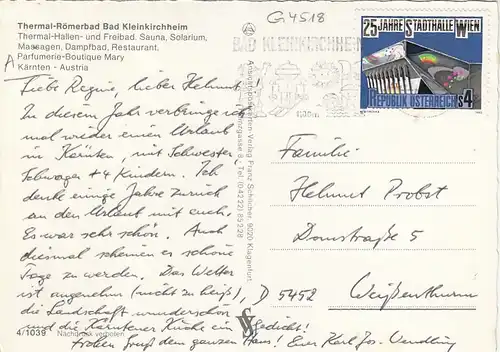 G4518
Thermal-Römerbad Bad Kleinkirchheim
Thermal-Hallen- und Freibad, Sauna, Solarium,
Massagen, Dampfbad, Restaurant,
Parfumerie-Boutique Mary
Kärnten - Austria
A
Liebe Regine, lieber Helmut!
In diesem Jahr verbringe ich
mal wieder einen Urlaub
in Kärnten, mit Schwester,
Schwager + 4 Kindern. Ich
denke einige Jahre zurück
an den Urlaub mit euch.
Es war sehr schön. Auch
diesmal scheinen es schöne
Tage zu werden. Das Wetter
ist angenehm (nicht zu heiß),
die Landschaft wunderschön
und die Kärntener Küche ein Gedicht!
Frohen Gruß dem ganzen Haus! Euer Karl Jos. Wendling
4/1039 Nachdruck verboten
Ansichtskarten-Verlag Franz Schilcher, 9020 Klagenfurt
BAD KLEINKIRCHHEIM
25 JAHRE STADTHALLE WIEN
REPUBLIK ÖSTERREICH S4
Familie
Helmut Probst
Domstraße 5
D 5452 Weißenthurm